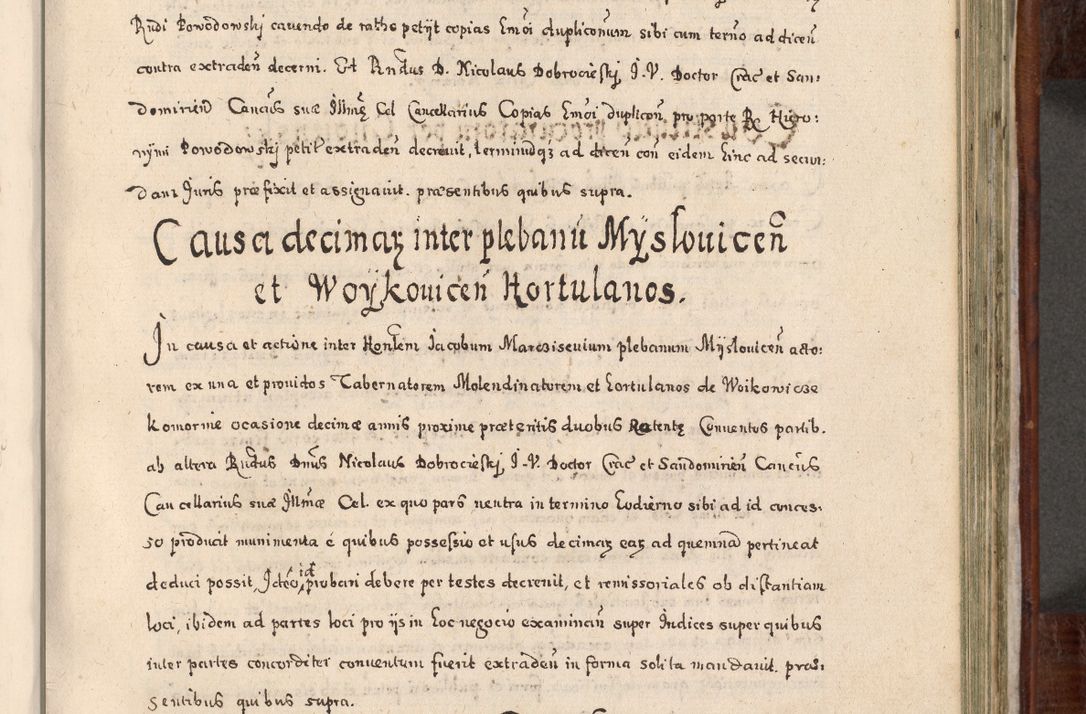 Rndi Powodowskj cavendo de ratho petijt copias Emõi dupliconum sibi cum terño ad dicen̄
contra extraden̄ decerni. Et Rndus D. Nicolaus Dobrocieskj I. V. Doctor Crac et San:
domirien̄ Cancūs suæ Illmæ Cel Cancellarius Copias Emõi duplicon̄ pro parte R Hiero:
nymi Powodowskj petit extraden̄ decrevit, terminūqz ad dicen̄ con̄ eidem hinc ad secun:
dam Juris præfixit et assignavit. præsentibus quibus supra.
Causa decimaꝝ inter plebanū Mÿslouicen̄
et Woÿkouicen̄ Hortulanos.
In causa et actione inter Honlem Jacobum Marczisevium plebanum Mÿslouicen̄ acto:
rem ex una et providos Tabernatorem Molendinatorem et hortulanos de Woikowicze
komornie ocasione decimæ annis proxime præteritis duobus Retentę Conventos partib.
ab altera Rndus Dnus Nicolaus Dobrocieskj I. V. Doctor Crac et Sandomirien̄ Cancūs
Cancellarius suæ Illmæ Cel. ex quo pars neutra in termino hodierno sibi ad id conces:
so producit munimenta è quibus possessio et usus decimaꝝ eaꝝ ad quemnā pertineat
deduci possit, Ideo id probari debere per testes decrevit, et remissoriales ob distantiam
loci, ibidem ad partes loci pro ijs in hoc negocio examinan̄ super Indices super quibus
inter partes concorditer conventum fuerit extraden̄ in forma solita mandavit. præ:
sentibus quibus supra.